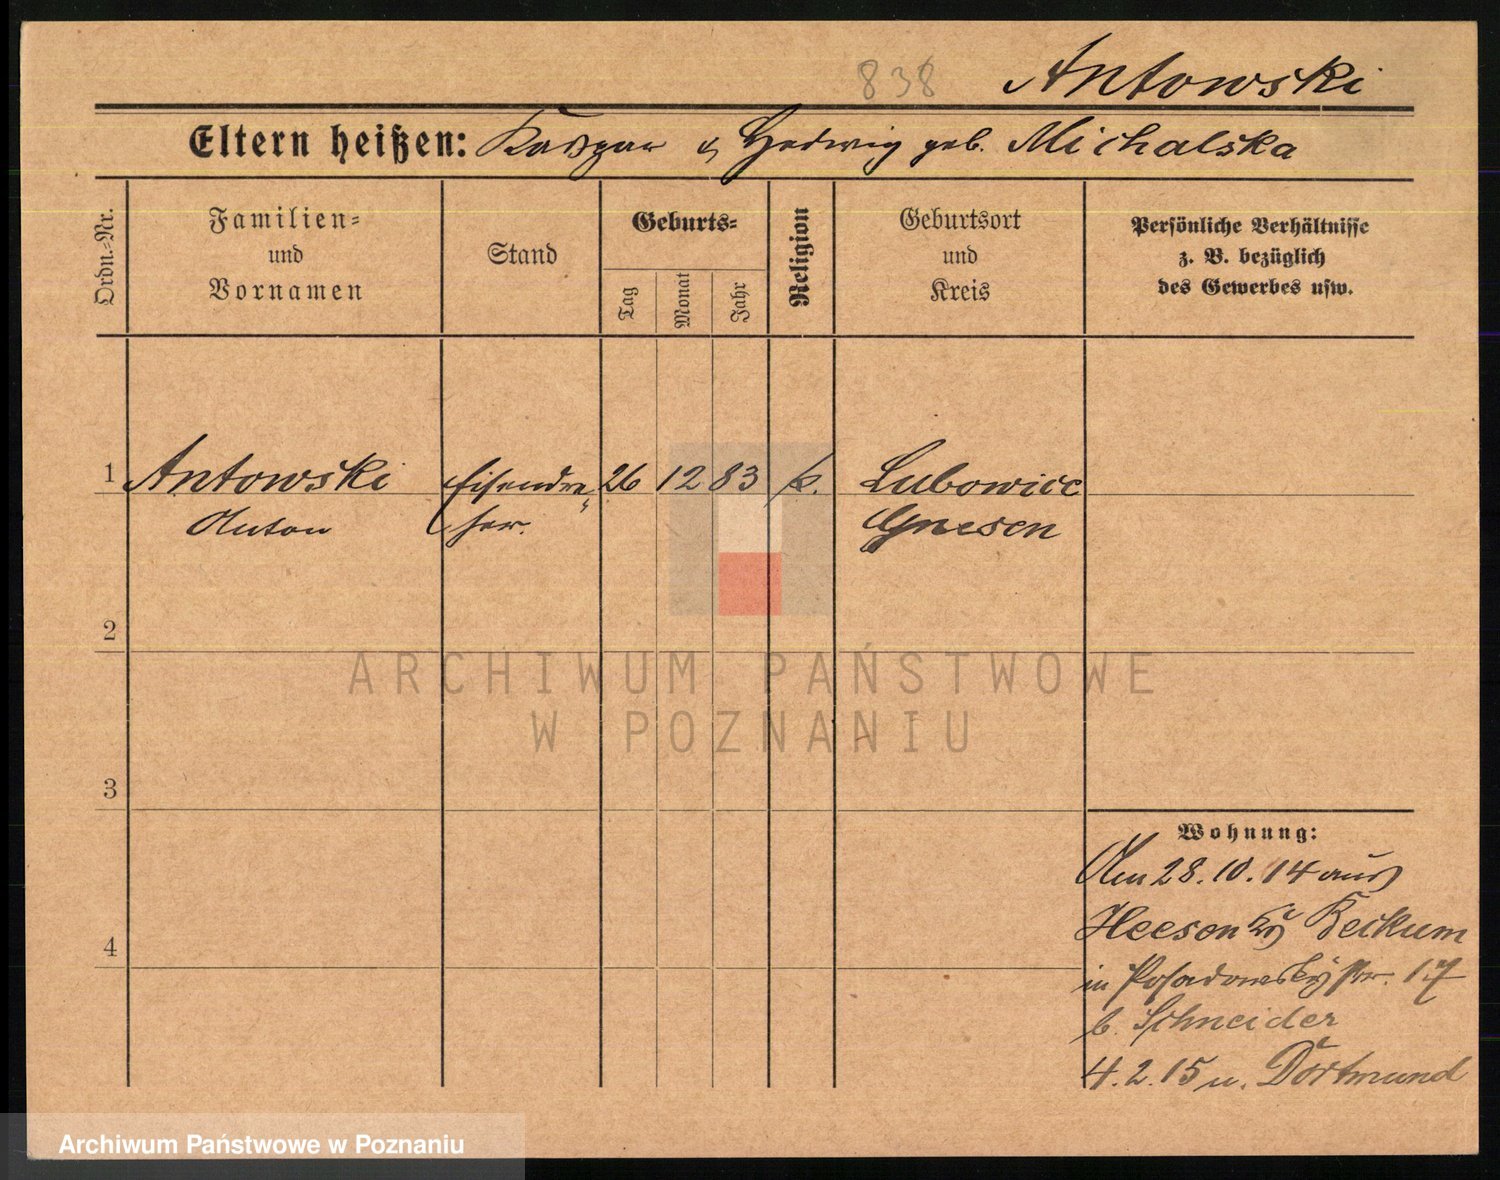 838 Antowski
Eltern heißen: Kaspar u Hedwig geb. Michalska
Ordn.-Nr.
Familien-
und
Vornamen
Stand
Geburts-
Tag
Monat
Jahr
Religion
Geburtsort
und
Kreis
Persönliche Verhältnisse
z. B. bezüglich
des Gewerbes usw.
1 Antowski Eisendre„ 26 12 83 k. Lubowice
Anton her. Gnesen
2
3
4
Wohnung:
Am 28. 10. 14 aus
Heeson Kr Beckum
in Posadowskystr. 17
b. Schneider
4. 2. 15 n. Dortmund
ARCHIWUM PAŃSTWOWE
W POZNANIU
Archiwum Państwowe w Poznaniu